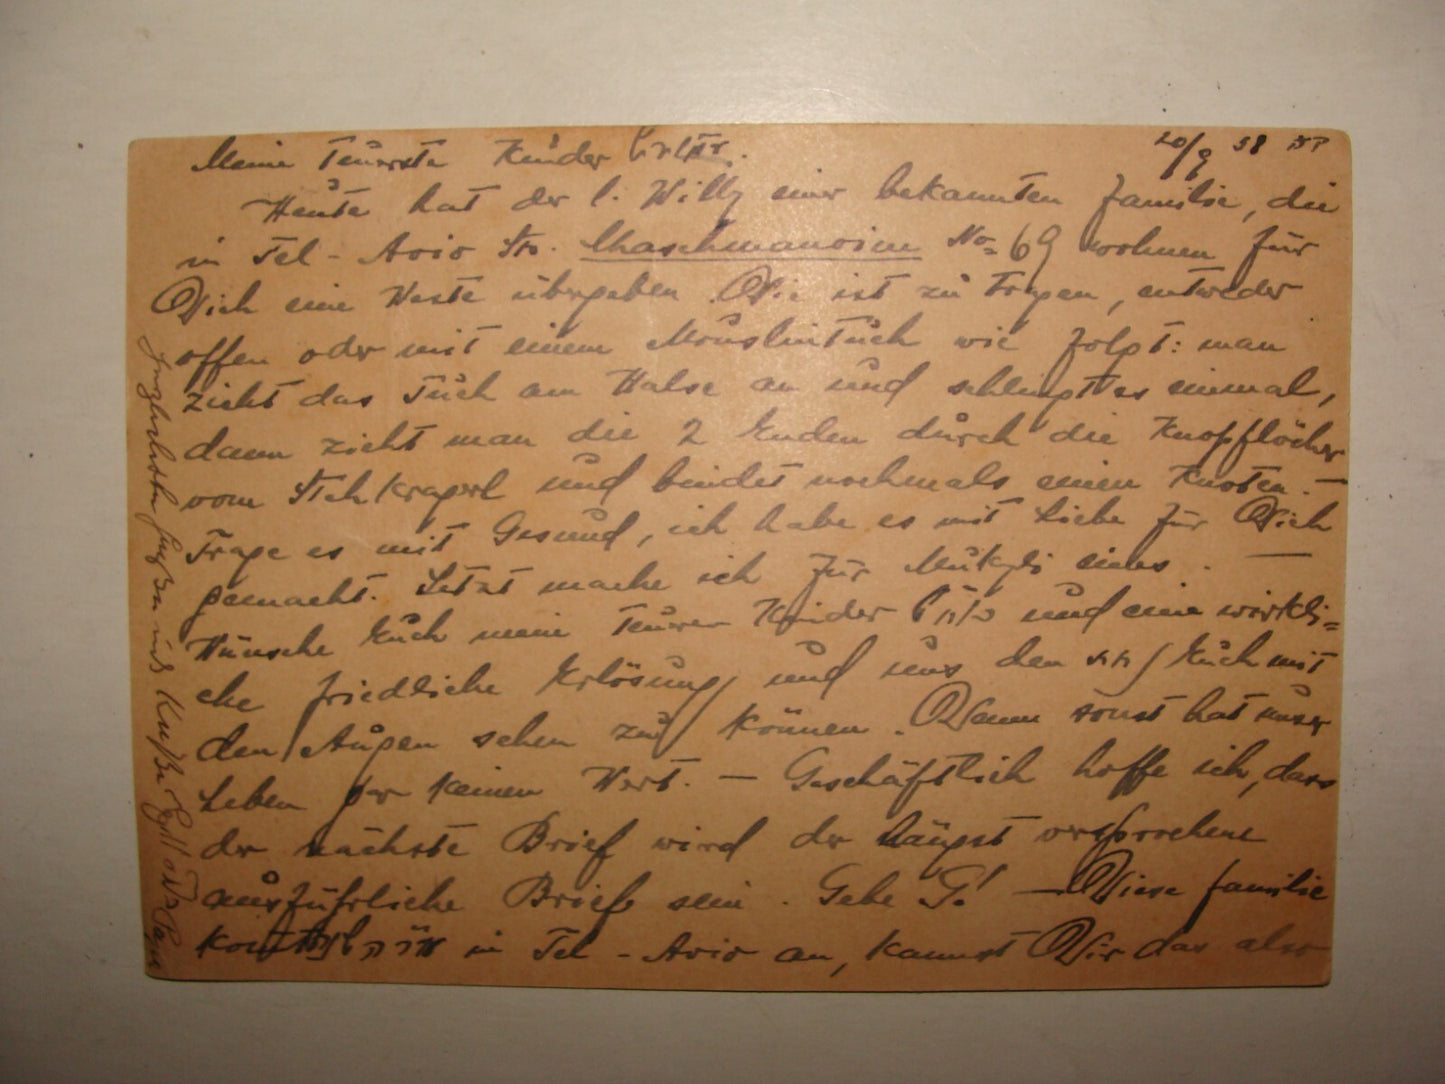 Meine Teuerste Kinder
20/9 38
Heute hat der l. Willy einer bekannten Familie, die
in Tel-Aviv Str. Chaschmanoim No= 69 wohnen für
Dich eine Weste übergeben. Die ist zu tragen, entweder
offen oder mit einem Mouslintuch wie folgt: man
zieht das Tuch am Halse an und schlingt es einmal,
dann zieht man die 2 Enden durch die Knopflöcher
vom und bindet nochmals einen Knoten. —
Trage es mit Gesund, ich habe es mit Liebe für Dich
gemacht. Jetzt mache ich für eines. —
Wünsche Euch meine Teuren Kinder und eine wirkli=
che friedliche Erlösung und uns den Euch mit
den Augen sehen zu können. Denn sonst hat unser
Leben gar keinen Wert. — Geschäftlich hoffe ich, dass
der nächste Brief wird der längst versprochene
ausführliche Brief sein. Gebe G.! — Diese Familie
kommt in Tel-Aviv an, kannst Dir das also